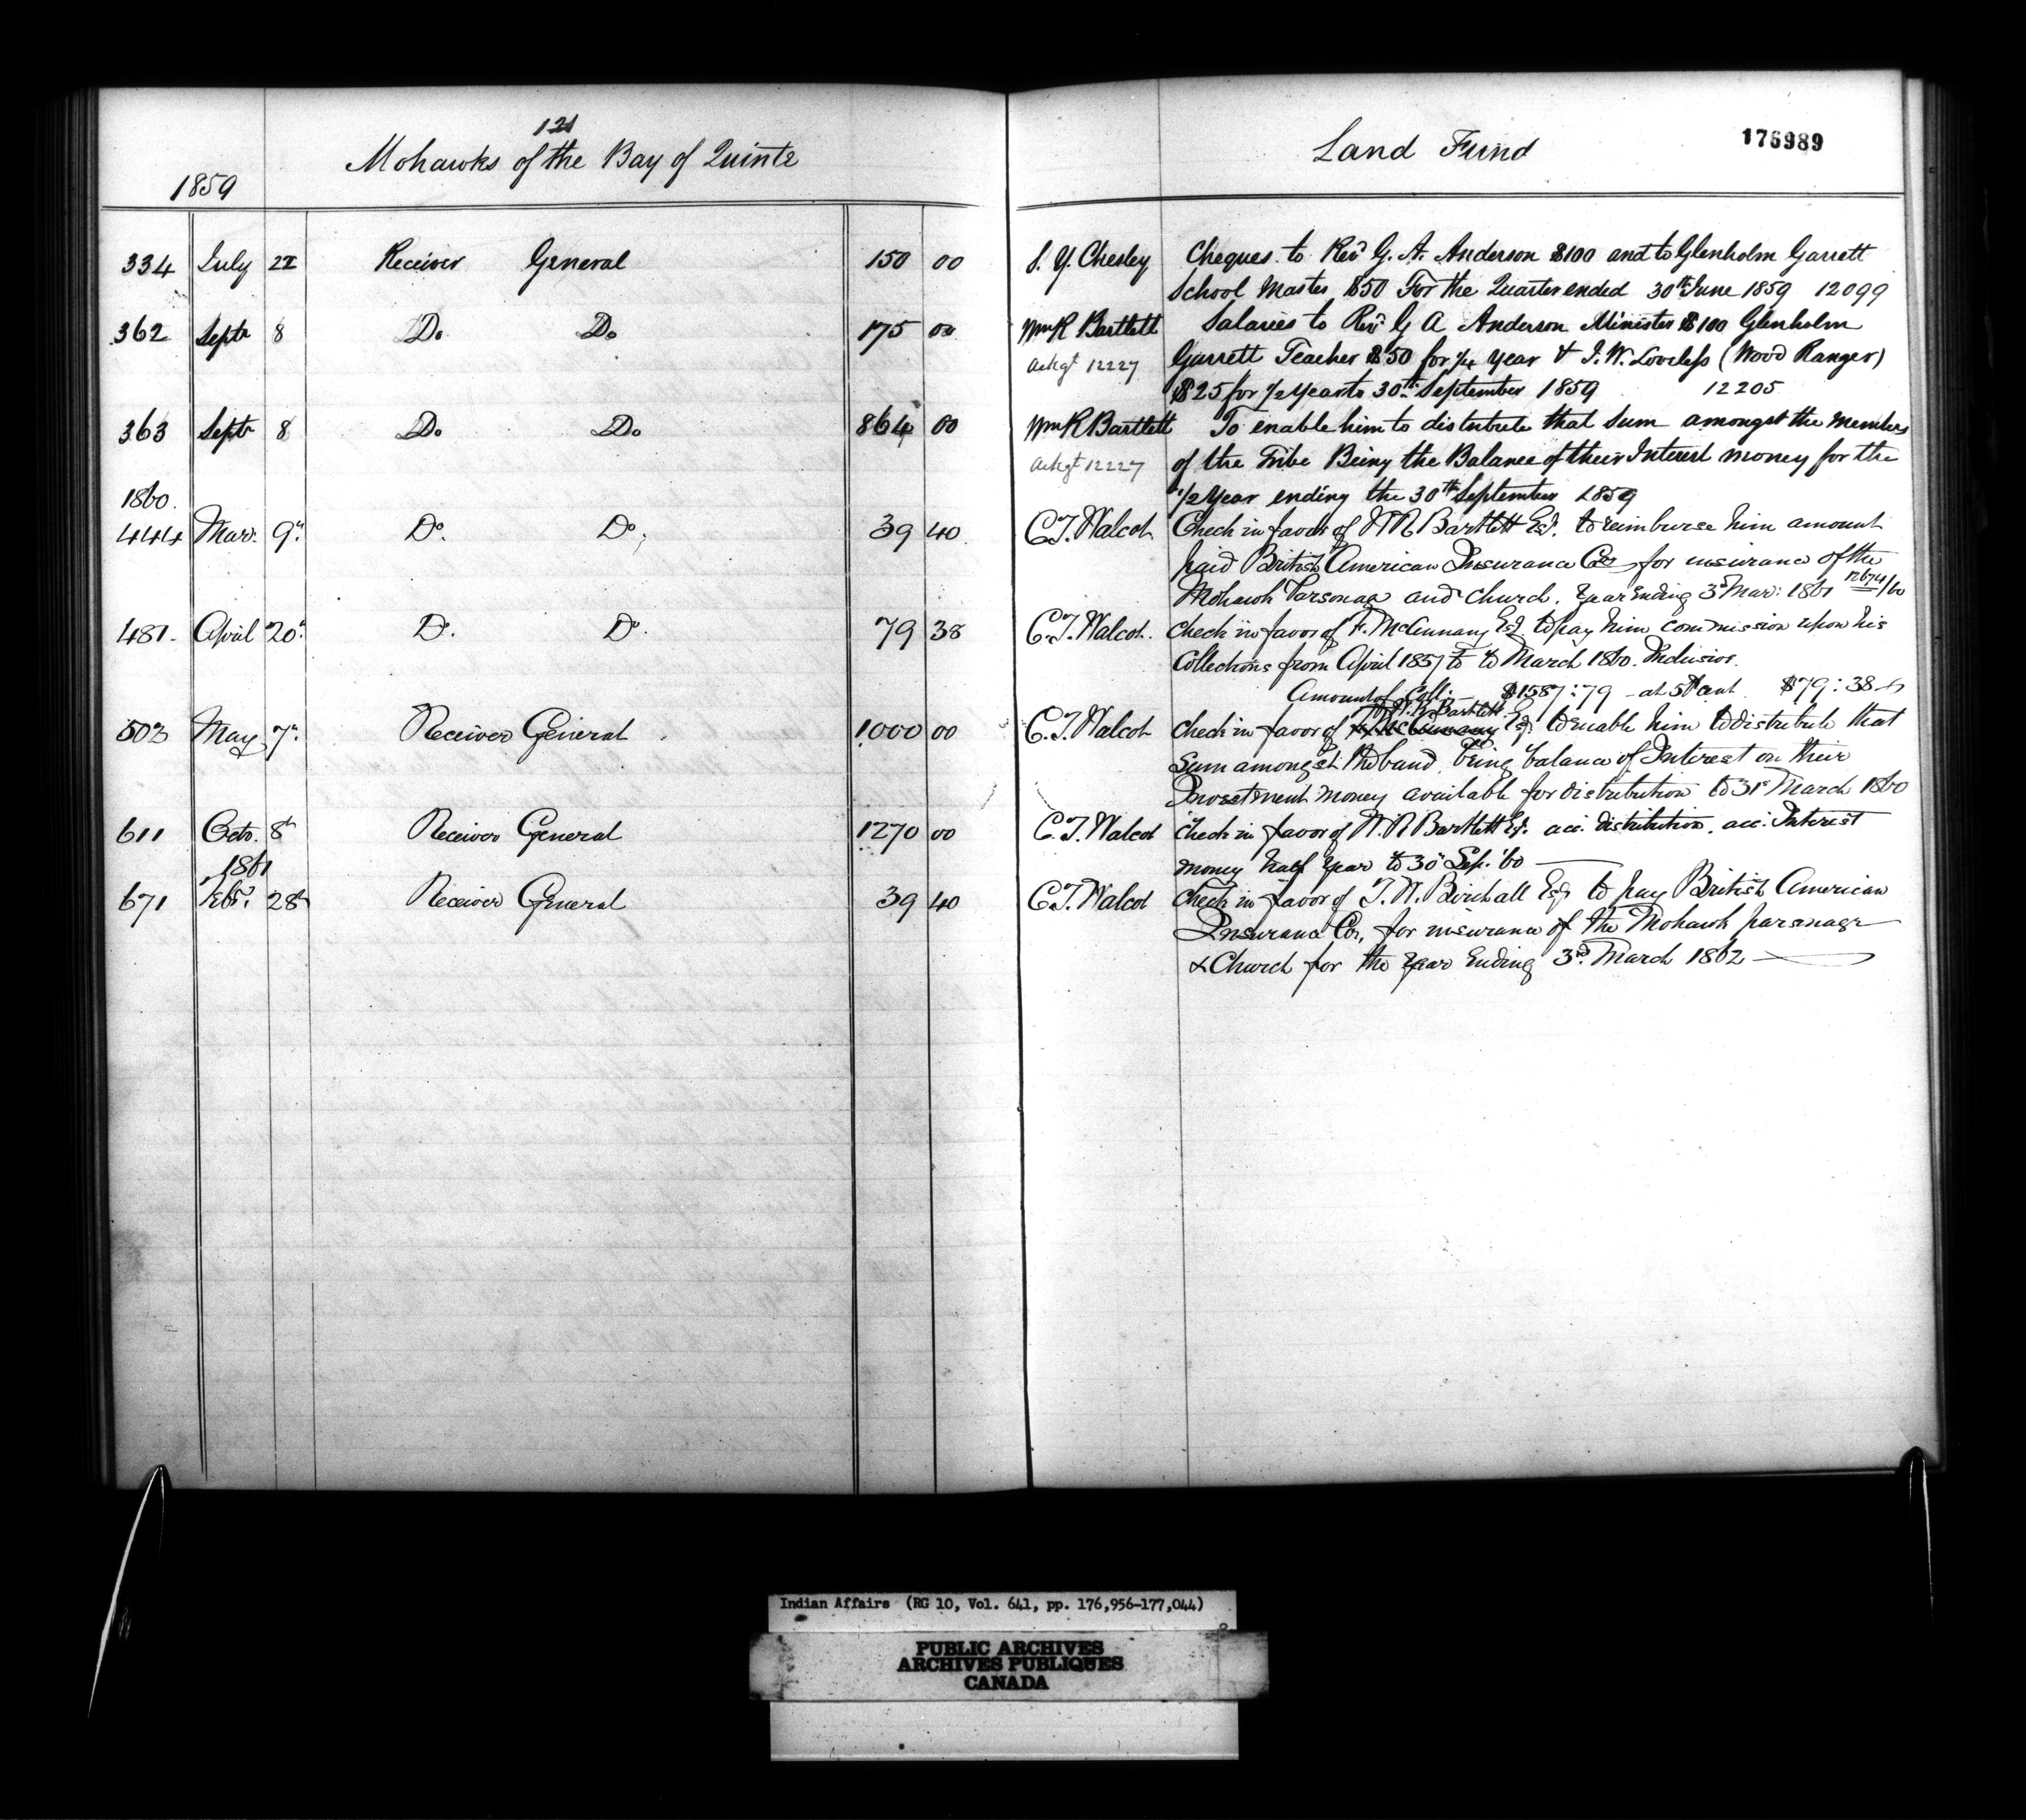 121
Mohawks of the Bay of Quinte
Land Fund
176989
1859
334 July 22 Receiver General 150 00 S. Y. Chesley Cheques to Revd G. A. Anderson $100 and to Glenholm Garrett
School Master $50 For the Quarter ended 30th June 1859 12099
362 Septr 8 Do Do 175 00 Wm R Bartlett Salaries to Revd G A Anderson Minister $100 Glenholm
Ackgt 12227 Garrett Teacher $50 for 1/4 year & J. W. Loveless (Wood Ranger)
$25 for 1/2 Year to 30th September 1859 12205
363 Septr 8 Do Do 864 00 Wm R Bartlett To enable him to distribute that Sum amongst the Members
Ackgt 12227 of the Tribe Being the Balance of their Interest money for the
1/2 Year ending the 30th September 1859
1860.
444 Mar: 9th Do. Do. 39 40 C. T. Walcot Check in favor of W R Bartlett Esq. to reimburse him amount
paid British American Insurance Co for insurance of the
Mohawk Parsonage and Church. Year Ending 3d Mar: 1861 12674/60
481. April 20th Do. Do. 79 38 C. T. Walcot. Check in favor of F. McAnnany Esq. to pay him commission upon his
Collections from April 1857 to March 1860. Inclusive.
Amount of Coll: — $1587:79 — at 5 P cent $79:38
503 May 7th Receiver General 1000 00 C. T. Walcot Check in favor of F. McAnnany W. R. Bartlett Esq. to enable him to distribute that
Sum amongst the band, being balance of Interest on their
Investment Money available for distribution to 31st March 1860
611 Octr. 8th Receiver General 1270 00 C. T. Walcot Check in favor of W. R Bartlett Esq. acc. distribution. acc. Interest
money half Year to 30th Sep. '60
1861
671 Feby. 28th Receiver General 39 40 C. T. Walcot Check in favor of T. W. Birchall Esq to pay British American
Insurance Co., for insurance of the Mohawk parsonage
& Church for the Year Ending 3rd. March 1862
Indian Affairs (RG 10, Vol. 641, pp. 176,956-177,044)
PUBLIC ARCHIVES
ARCHIVES PUBLIQUES
CANADA